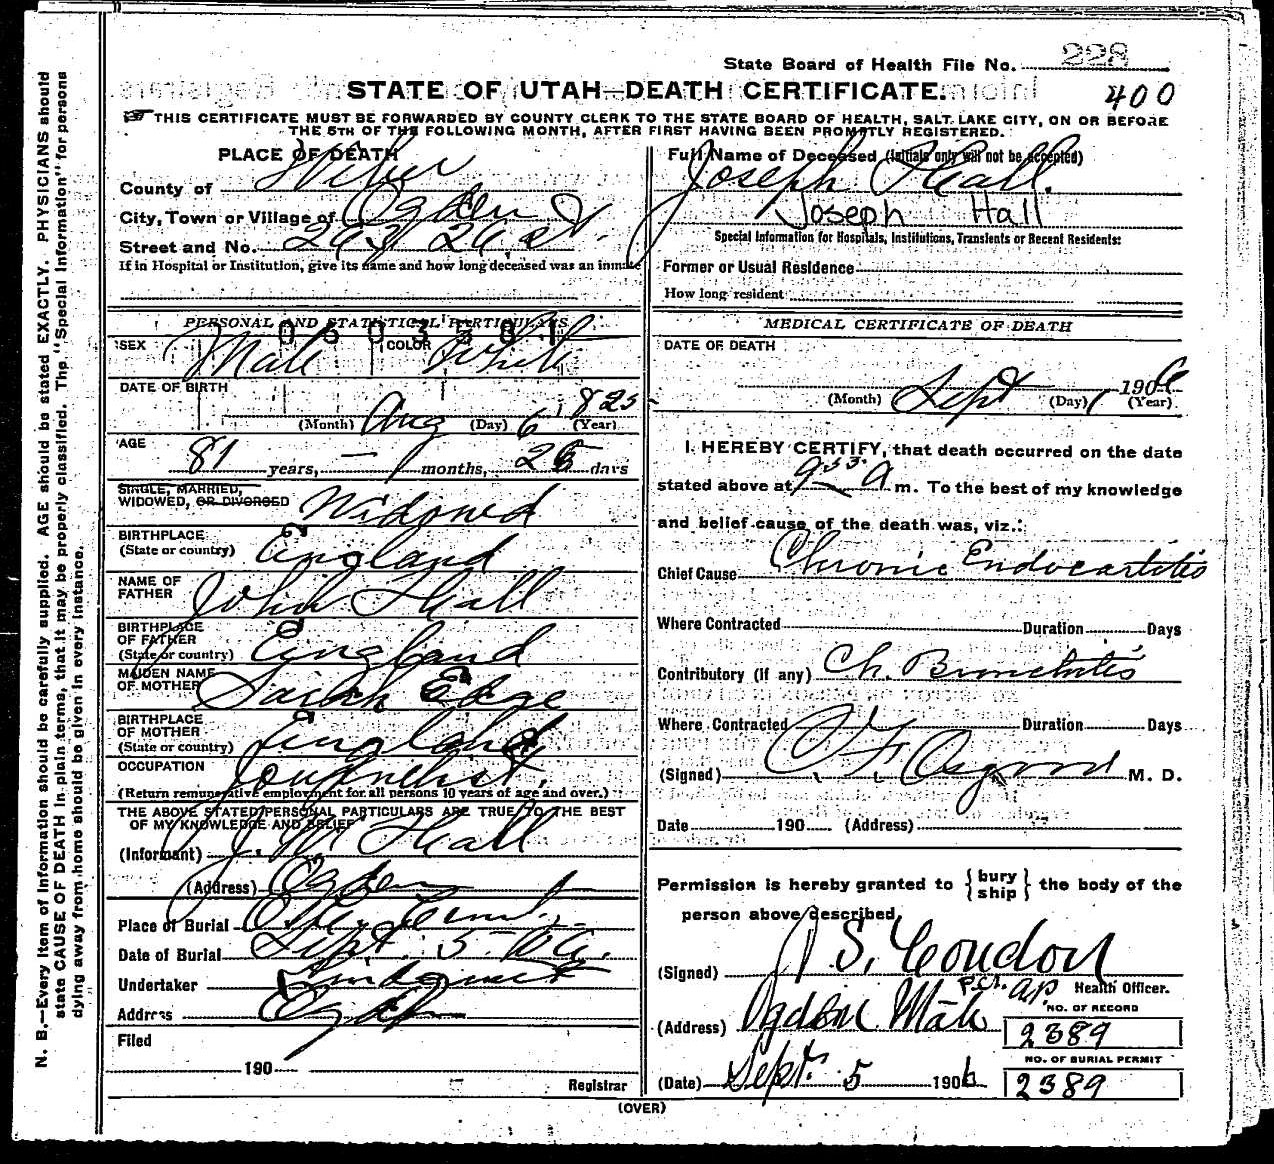 State Board of Health File No. 228
STATE OF UTAH—DEATH CERTIFICATE.
400
THIS CERTIFICATE MUST BE FORWARDED BY COUNTY CLERK TO THE STATE BOARD OF HEALTH, SALT LAKE CITY, ON OR BEFORE
THE 5TH OF THE FOLLOWING MONTH, AFTER FIRST HAVING BEEN PROMPTLY REGISTERED.
PLACE OF DEATH
County of Weber
City, Town or Village of Ogden
Street and No. 263 26 St.
If in Hospital or Institution, give its name and how long deceased was an inmate
PERSONAL AND STATISTICAL PARTICULARS
0603381
SEX Male COLOR White
DATE OF BIRTH
Aug 6 1825
(Month) (Day) (Year)
AGE
81 years, — months, 26 days
SINGLE, MARRIED,
WIDOWED, OR DIVORCED Widowed
BIRTHPLACE
(State or country) England
NAME OF
FATHER John Hall
BIRTHPLACE
OF FATHER
(State or country) England
MAIDEN NAME
OF MOTHER Sarah Edge
BIRTHPLACE
OF MOTHER
(State or country) England
OCCUPATION Journalist.
(Return remunerative employment for all persons 10 years of age and over.)
THE ABOVE STATED PERSONAL PARTICULARS ARE TRUE TO THE BEST
OF MY KNOWLEDGE AND BELIEF
(Informant) J. W. Hall
(Address) Ogden
Place of Burial City Cem.
Date of Burial Sept. 5 - 06.
Undertaker Lindquist
Address Ogden
Filed
190
Registrar
Full Name of Deceased (Initials only will not be accepted)
Joseph Hall.
Joseph Hall
Special Information for Hospitals, Institutions, Transients or Recent Residents:
Former or Usual Residence
How long resident
MEDICAL CERTIFICATE OF DEATH
DATE OF DEATH
Sept 1 1906
(Month) (Day) (Year)
I HEREBY CERTIFY, that death occurred on the date
stated above at 9 55 A m. To the best of my knowledge
and belief cause of the death was, viz.:
Chief Cause Chronic Endocartitis
Where Contracted Duration Days
Contributory (if any) Ch. Bronchitis
Where Contracted Duration Days
(Signed) Osgood M. D.
Date 190 (Address)
Permission is hereby granted to {bury ship} the body of the
person above described,
(Signed) J S. Condon
Health Officer.
(Address) Ogden Utah
NO. OF RECORD
2389
NO. OF BURIAL PERMIT
(Date) Sept. 5 1906 2389
(OVER)
N. B.—Every item of information should be carefully supplied. AGE should be stated EXACTLY. PHYSICIANS should
state CAUSE OF DEATH in plain terms, that it may be properly classified. The "Special Information" for persons
dying away from home should be given in every instance.